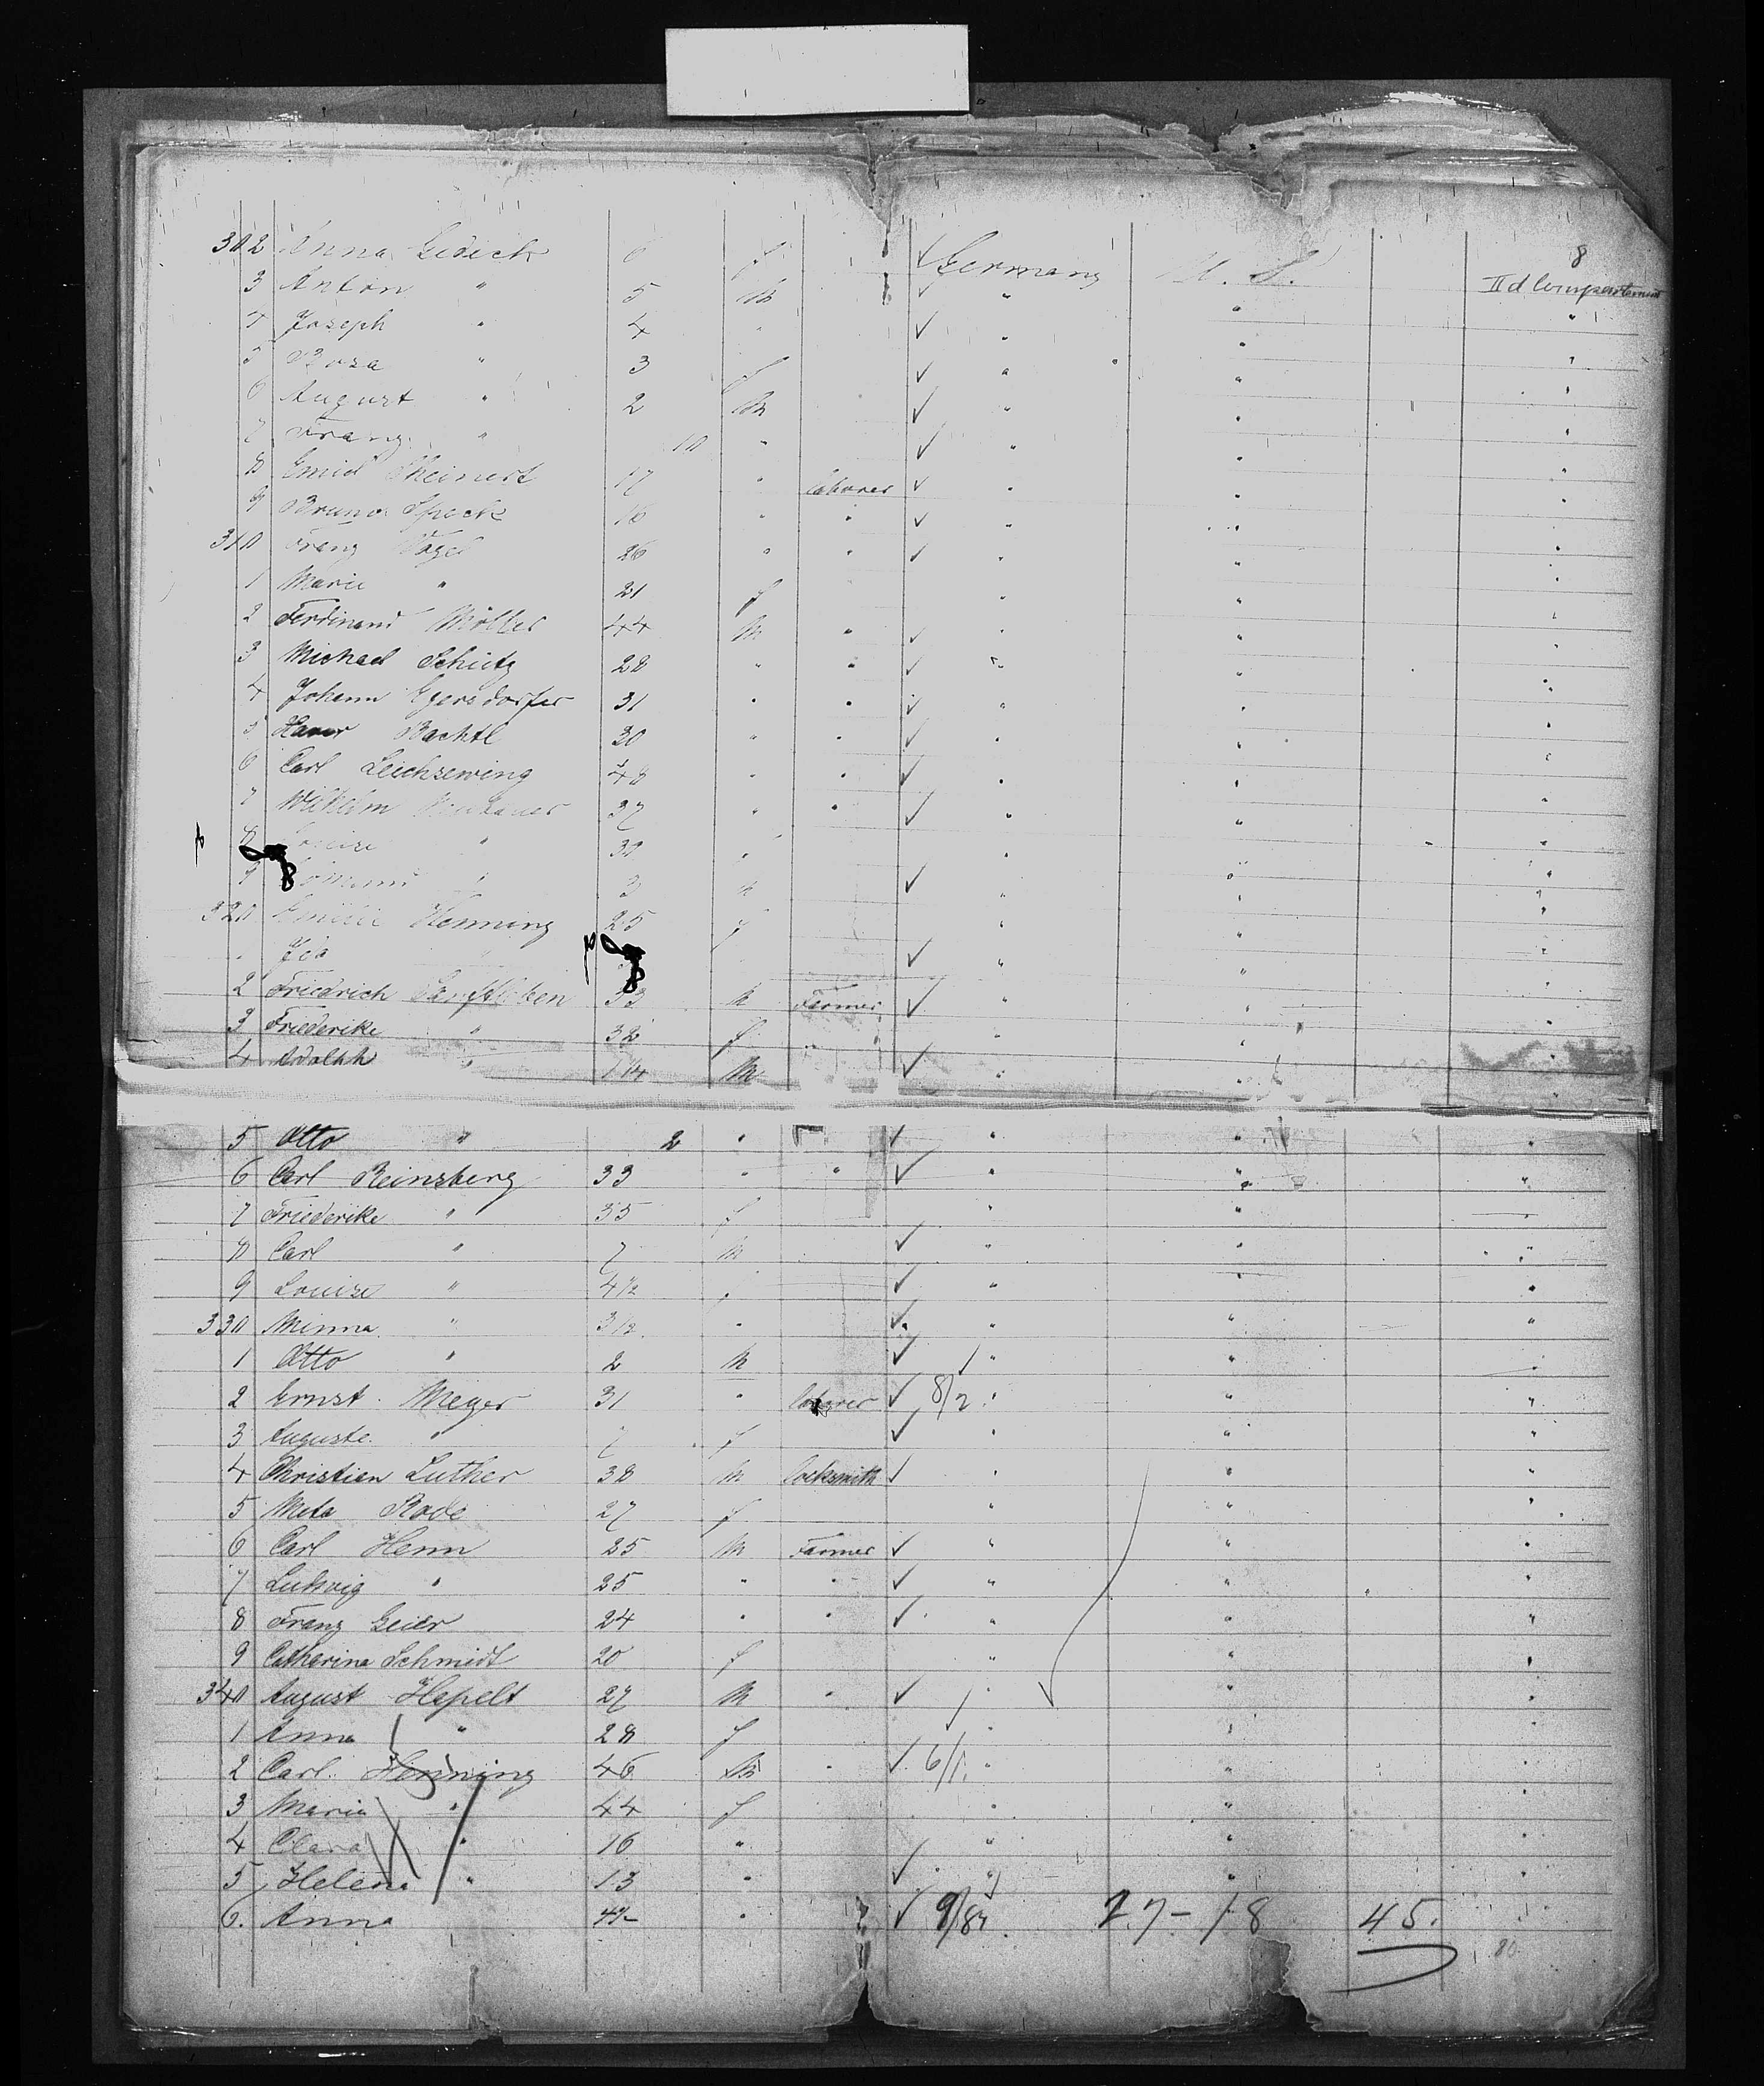 8
302 Anna Gedick 6 f ✓ Germany U. S. IId Compartement
3 Anton " 5 m ✓ " " "
4 Joseph " 4 " ✓ " " "
5 Rosa " 3 f ✓ " " "
6 August " 2 m ✓ " " "
7 Franz " 10 " ✓ " " "
8 Emil Theinert 17 " laborer ✓ " " "
9 Bruno Speck 16 " " ✓ " " "
310 Franz Vogel 26 " " ✓ " " "
1 Marie " 21 f " " "
2 Ferdinand Möller 44 m " ✓ " " "
3 Michael Schütz 28 " " ✓ " " "
4 Johann Egersdorfer 31 " " ✓ " " "
5 Xaver Bachtl 30 " " ✓ " " "
6 Carl Leichsenring 48 " " ✓ " " "
7 Wilhelm 37 " " ✓ " " "
8 Louise " 30 " " " "
9 " 3 m ✓ " " "
320 Emilie Henning 25 f " " "
✓ " " "
2 Friedrich 33 m Farmer ✓ " " "
3 Friederike " 32 f " " "
4 Adolph " m ✓ " " "
5 Otto " 2 " ✓ " " "
6 Carl Reinsberg 33 " " ✓ " " "
7 Friederike " 35 f " " "
8 Carl " 7 m ✓ " " "
9 Louise " 4½ f ✓ " " "
330 Minna " 3½ " ✓ " " "
1 Otto " 2 m ✓ " " "
2 Ernst Meyer 31 " laborer ✓ 8/2 " " "
3 Auguste " 7 f ✓ " " "
4 Christian Luther 38 m locksmith ✓ " " "
5 Meta Rode 27 f " " "
6 Carl Henn 25 m Farmer ✓ " " "
7 Ludwig " 25 " " ✓ " " "
8 Franz Geier 24 " " ✓ " " "
9 Catharina Schmidt 20 f " " "
340 August Hepelt 27 m " ✓ " " "
1 Anna " 28 f " " "
2 Carl Henning 46 m " ✓ 6/1 " " "
3 Maria " 44 f " " "
4 Clara " 16 " ✓ " " "
5 Helena " 13 " ✓ " " "
6. Anna " ✓ 27 - 18 45.
80